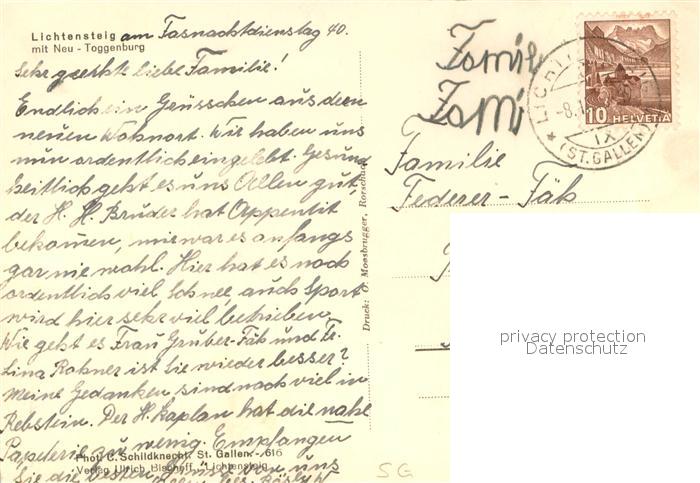 Lichtensteig am Fasnachtdienstag 40.
mit Neu-Toggenburg
Sehr geerhte liebe Familie!
Endlich ein Grüsschen aus dem
neuen Wohnort. Wir haben uns
nun ordentlich eingelebt. Gesund
heitlich geht es uns Allen gut,
der H. H. Bruder hat Appentit
bekommen, mir war es anfangs
gar nie wohl. Hier hat es noch
ordentlich viel Schnee, auch Sport
wird hier sehr viel betrieben.
Wie geht es Frau Gruber-Fäh und Fr.
Lina Rohner ist Sie wieder besser?
Meine Gedanken sind noch viel in
Rebstein. Der H. Kaplan hat die nahe
Papeterie zu wenig. Empfangen
Phot. C. Schildknecht, St. Gallen. 616
Verlag Ulrich Bischoff, Lichtensteig
Sie die besten Grüsse von uns
Druck: O. Moosbrugger, Rorschach
Familie
Fami
Familie
Federer-Fäh
10 HELVETIA
LICHTENSTEIG
(ST. GALLEN)
IX
privacy protection
Datenschutz
SG